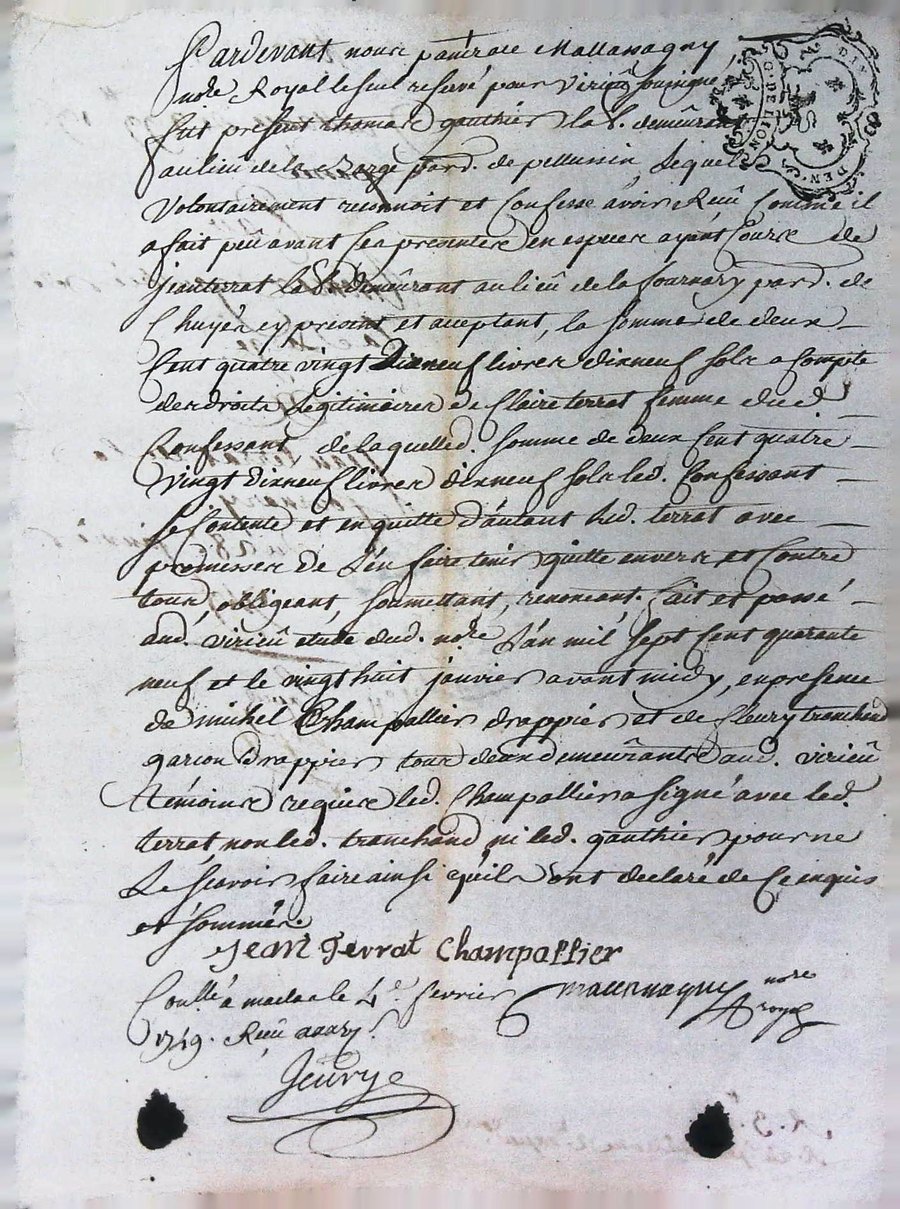 Pardevant nous pancrace Mallassagny
no.re Royal le seul reservé pour virieu soussigné
fut present thomas gauthier la b. demeurant
au lieu de la parr. de pellussin, lequel
volontairement reconnoit et confesse avoir Reçû comme il
a fait peû avant ces presentes en especes ayant cours de
jean terrat la b. demeurant au lieû de la fournary parr. de
Chuyer cy present et acceptant, la somme de deux
Cent quatre vingt dixneuf livres dixneuf sols a compte
des droits Legitimaires de Claire terrat femme dud.
Confessant, de laquelled. somme de deux Cent quatre
vingt dixneuf livres dixneuf sols led. Confessant
se Contente et en quitte d'autant led. terrat avec
promesses de L'en faire tenir quitte envers et Contre
tous, obligeant, soumettant, renoncant. fait et passé
aud. virieû etude dud. no.re L'an mil sept Cent quarante
neuf et le vingt huit janvier avant midy, en presence
de michel Champallier drappier et de fleury tranchand
garcon drappier tous deux demeurants aud. virieû
témoins requis led. Champallier a signé avec led.
terrat non led. tranchand ni led. gauthier pour ne
Le scavoir faire ainsi qu'ils ont declaré de Ce inquis
et sommés.
Jean Terrat Champallier
Con.llé a maclas le 4.e fevrier Mallassagny no.re royal
1749. Reçû
DEN. G. DE LION DIX